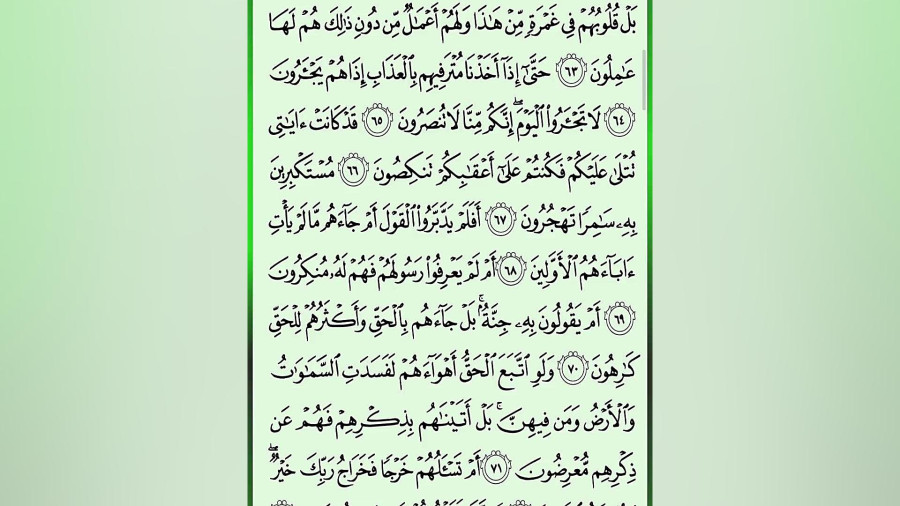 بَلْ قُلُوبُهُمْ فِي غَمْرَةٍ مِّنْ هَٰذَا وَلَهُمْ أَعْمَٰلٌ مِّن دُونِ ذَٰلِكَ هُمْ لَهَا
عَٰمِلُونَ ٦٣ حَتَّىٰٓ إِذَآ أَخَذْنَا مُتْرَفِيهِم بِٱلْعَذَابِ إِذَا هُمْ يَجْـَٔرُونَ
٦٤ لَا تَجْـَٔرُوا۟ ٱلْيَوْمَ ۖ إِنَّكُم مِّنَّا لَا تُنصَرُونَ ٦٥ قَدْ كَانَتْ ءَايَٰتِى
تُتْلَىٰ عَلَيْكُمْ فَكُنتُمْ عَلَىٰٓ أَعْقَٰبِكُمْ تَنكِصُونَ ٦٦ مُسْتَكْبِرِينَ
بِهِۦ سَٰمِرًا تَهْجُرُونَ ٦٧ أَفَلَمْ يَدَّبَّرُوا۟ ٱلْقَوْلَ أَمْ جَآءَهُم مَّا لَمْ يَأْتِ
ءَابَآءَهُمُ ٱلْأَوَّلِينَ ٦٨ أَمْ لَمْ يَعْرِفُوا۟ رَسُولَهُمْ فَهُمْ لَهُۥ مُنكِرُونَ
٦٩ أَمْ يَقُولُونَ بِهِۦ جِنَّةٌۢ ۚ بَلْ جَآءَهُم بِٱلْحَقِّ وَأَكْثَرُهُمْ لِلْحَقِّ
كَٰرِهُونَ ٧٠ وَلَوِ ٱتَّبَعَ ٱلْحَقُّ أَهْوَآءَهُمْ لَفَسَدَتِ ٱلسَّمَٰوَٰتُ
وَٱلْأَرْضُ وَمَن فِيهِنَّ ۚ بَلْ أَتَيْنَٰهُم بِذِكْرِهِمْ فَهُمْ عَن
ذِكْرِهِم مُّعْرِضُونَ ٧١ أَمْ تَسْـَٔلُهُمْ خَرْجًا فَخَرَاجُ رَبِّكَ خَيْرٌ ۖ